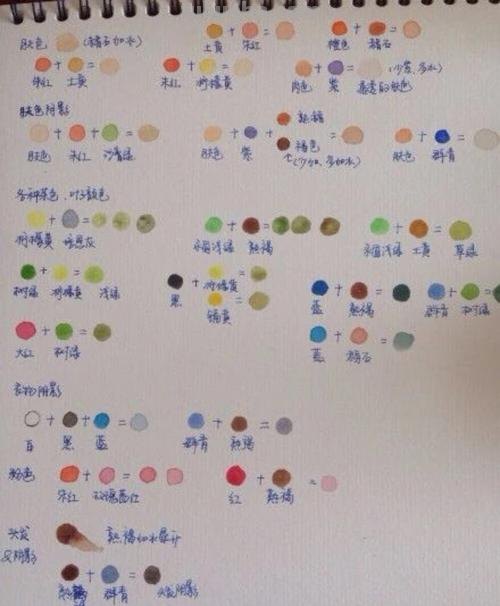 肤色 (赭石加水)
土黄 朱红 橙色 赭石
朱红 土黄 朱红 柠檬黄 肉色 紫 (少紫、多水)
肤色阴影
熟褐
肤色 朱红 肤色 紫 褐色 肤色 群青
(少加、多加水)
各种草色、叶子颜色
柠檬黄 永固浅绿 熟褐 永固浅绿 土黄 草绿
树绿 柠檬黄 浅绿 黑 柠檬黄
镉黄 蓝 熟褐 群青 树绿
大红 树绿 蓝 赭石
衣物阴影
白 黑 蓝 群青 熟褐
粉色
朱红 红 熟褐
头发
及阴影 熟褐加水晕开
熟褐 群青 头发阴影